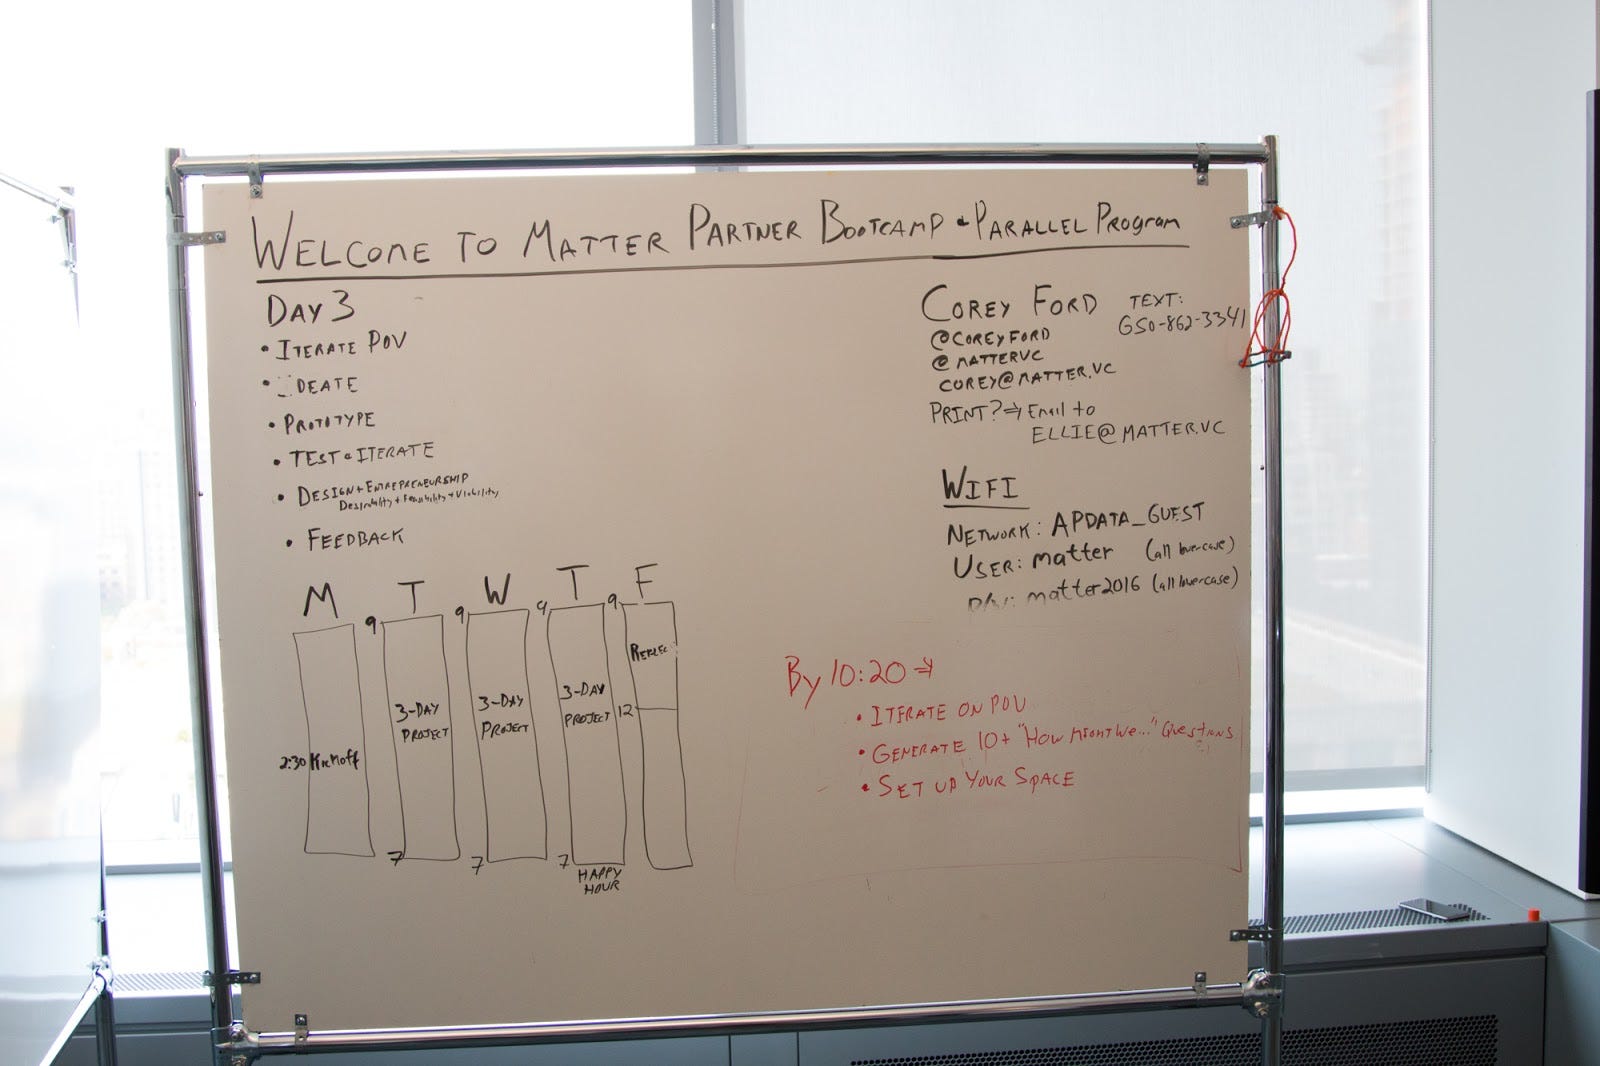 WELCOME TO MATTER PARTNER BOOTCAMP & PARALLEL PROGRAM
DAY 3
• ITERATE POV
• DEATE
• PROTOTYPE
• TEST & ITERATE
• DESIGN + ENTREPRENEURSHIP
Desirability + Feasibility + Viability
• FEEDBACK
COREY FORD
TEXT:
650-862-3341
@COREYFORD
@MATTERVC
COREY@MATTER.VC
PRINT? ⇒ Email to
ELLIE@MATTER.VC
WIFI
NETWORK: APDATA_GUEST
USER: matter (all lowercase)
P/W: matter2016 (all lowercase)
M T W T F
9 9 9 9
REFLEC
3-DAY 3-DAY 3-DAY
PROJECT PROJECT PROJECT 12
2:30 KICKOFF
7 7 7
HAPPY
HOUR
By 10:20 ⇒
• ITERATE ON POV
• GENERATE 10+ "HOW MIGHT WE..." QUESTIONS
• SET UP YOUR SPACE